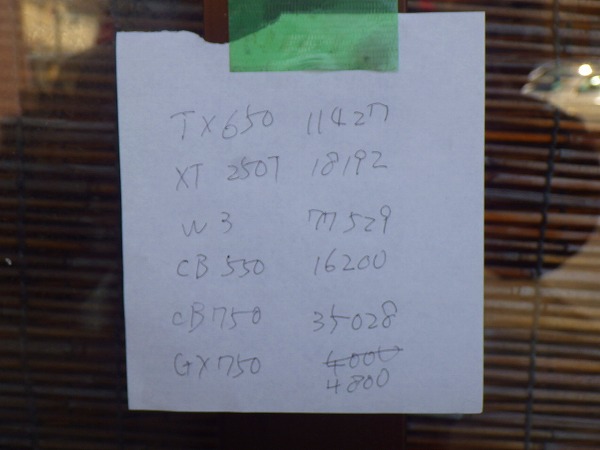 TX650 11427
XT 250T 18192
W3 77529
CB 550 16200
CB750 35028
GX750 4000
4800